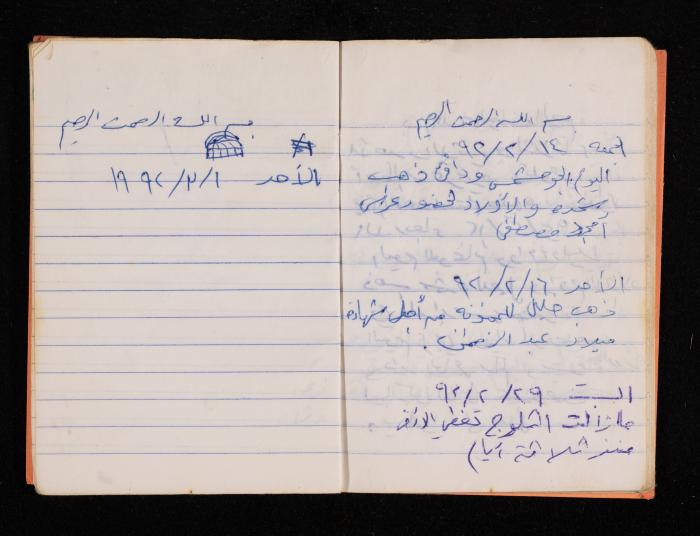 بسم الله الرحمن الرحيم
الجمعة ٩٢/٢/١٤
اليوم الجو مشمس ودافئ ذهبت
والأولاد لحضور عرس
أمجد مصطفى
الأحد ٩٢/٢/١٦
ذهب جلال للمخزنة من أجل شهادة
ميلاد عبد الرحمن.
السبت ٩٢/٢/٢٩
ما زالت الثلوج تغطي الأرض
منذ ثلاثة أيام
بسم الله الرحمن الرحيم
الأحد ١٩٩٢/٣/١